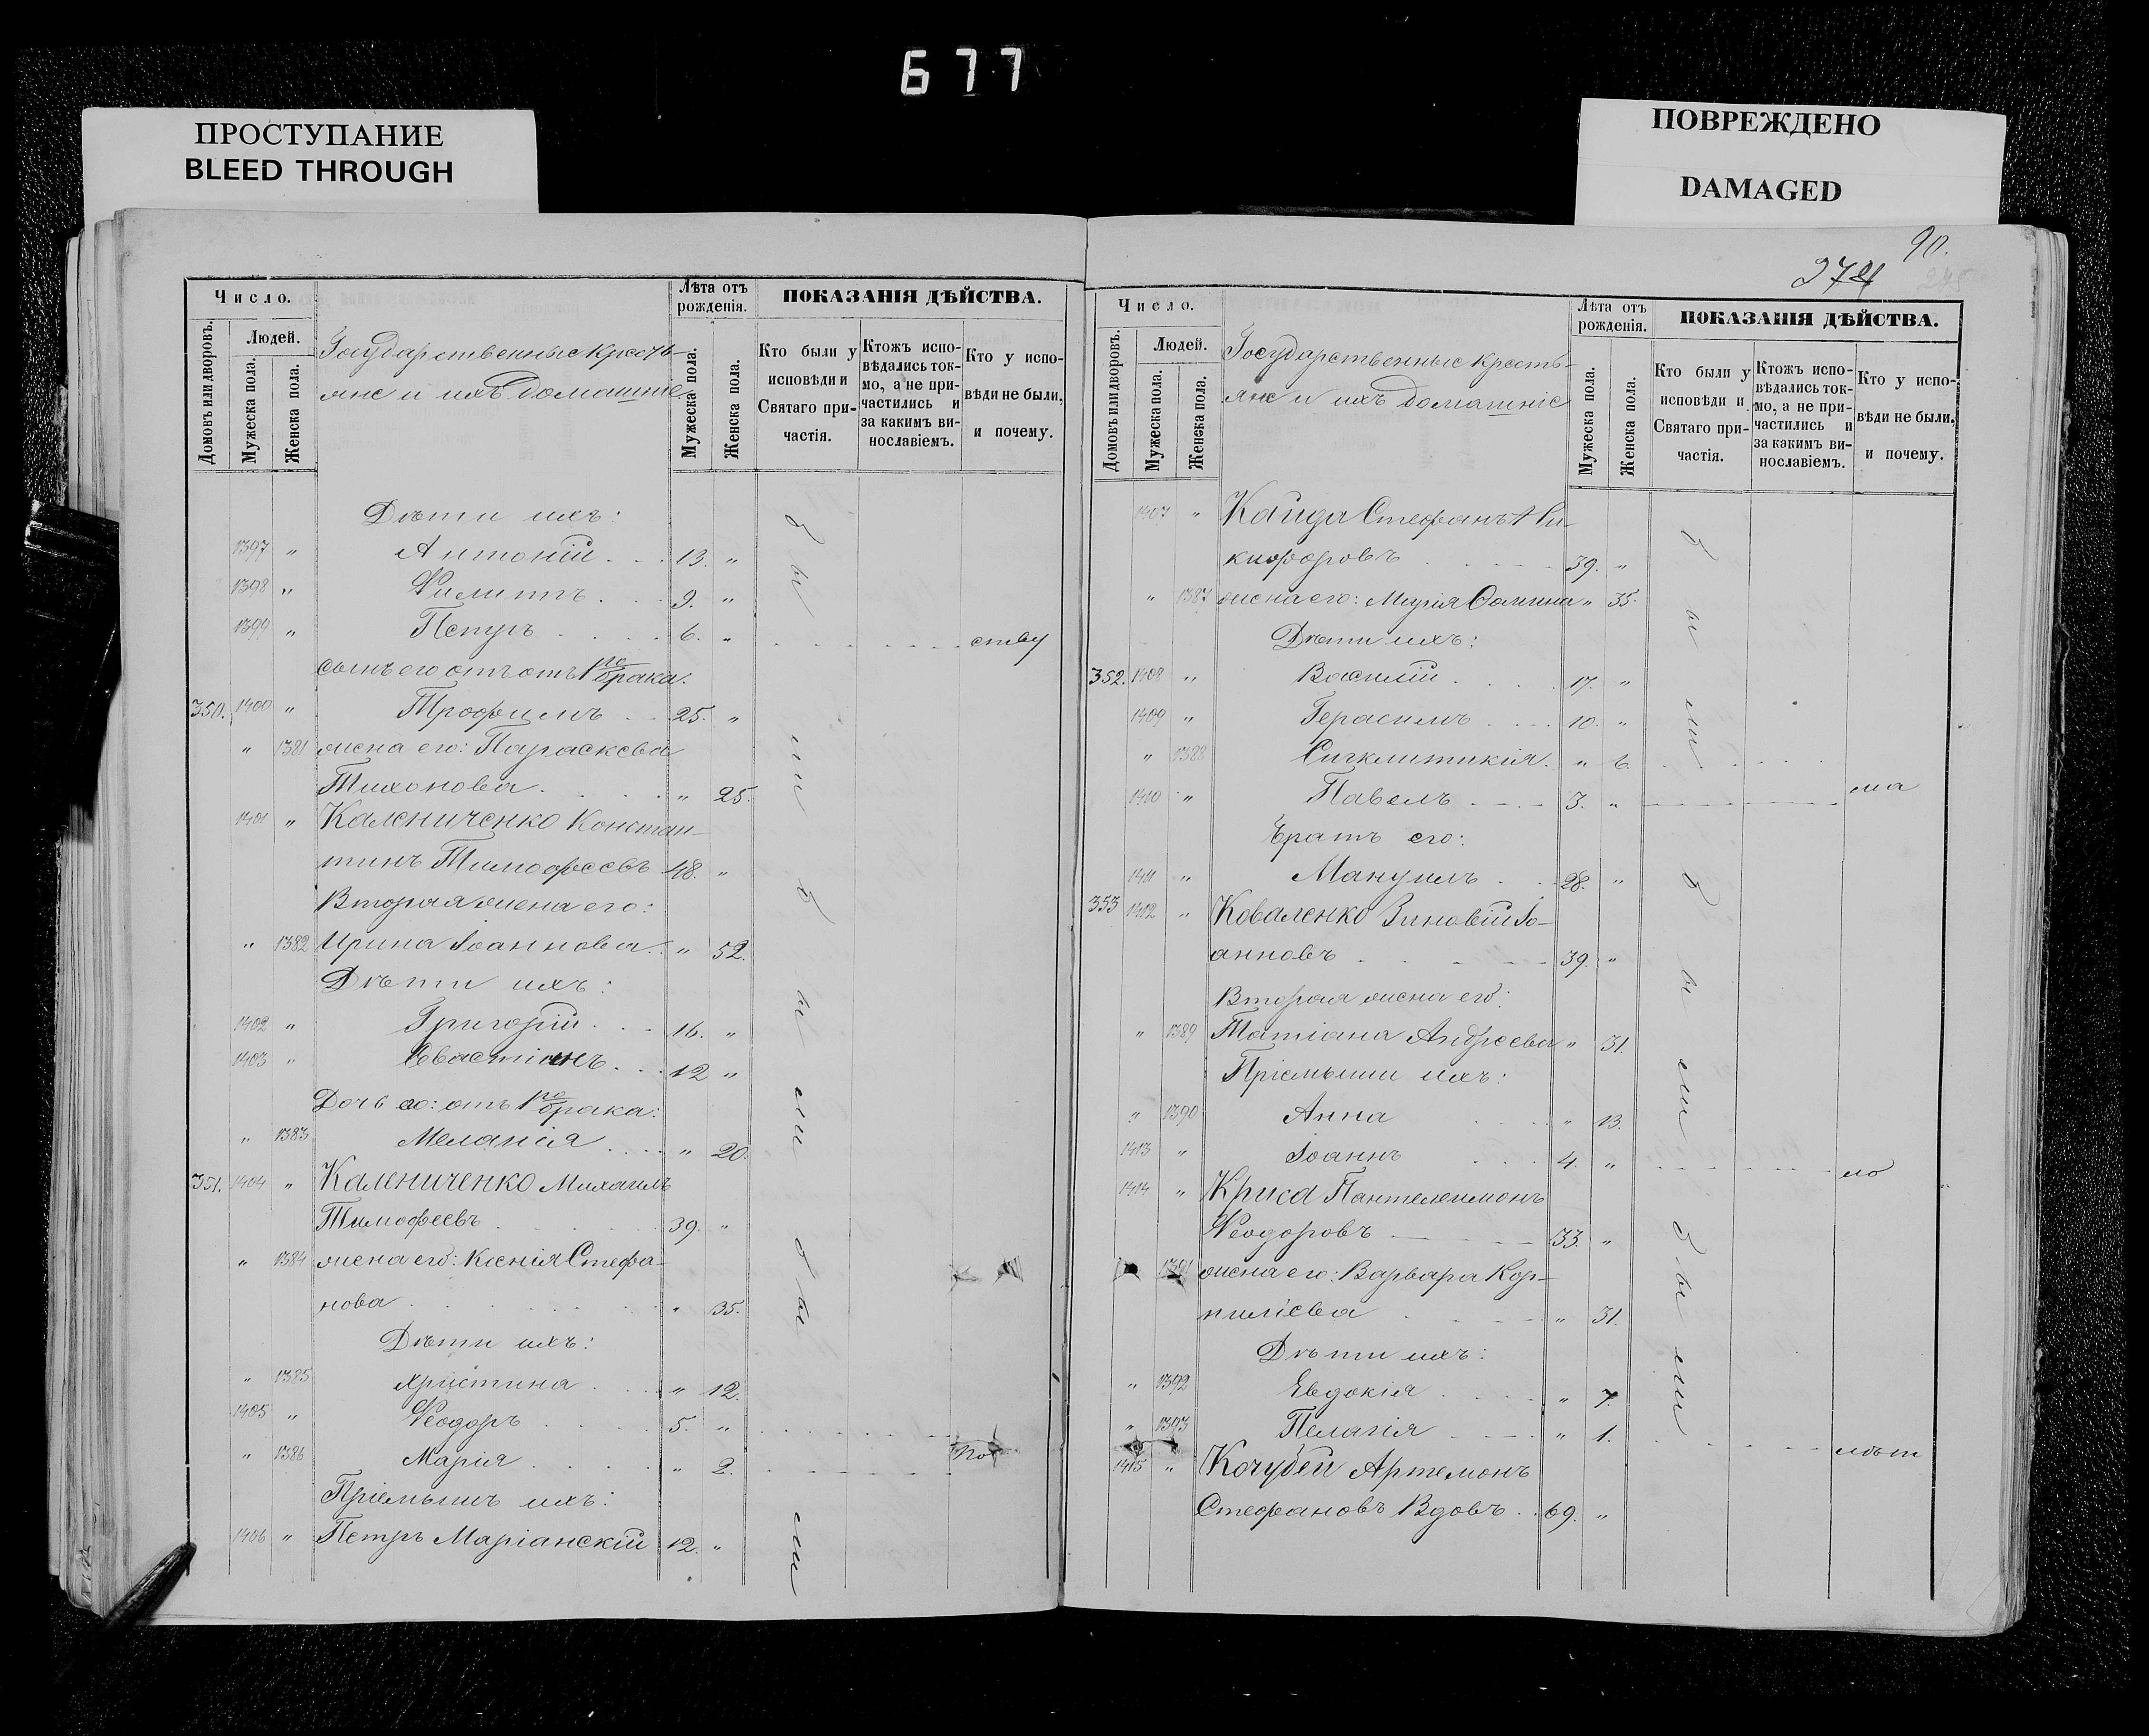 677
ПРОСТУПАНИЕ
BLEED THROUGH
ПОВРЕЖДЕНО
DAMAGED
Число.
Домовъ или дворовъ.
Людей.
Мужеска пола.
Женска пола.
Государственные кресть-
яне и ихъ домашние
Лѣта отъ рожденія.
Мужеска пола.
Женска пола.
ПОКАЗАНІЯ ДѢЙСТВА.
Кто были у исповѣди и Святаго при-частія.
Ктожъ испо-вѣдались ток-мо, а не при-частились и за какимъ ви-нославіемъ.
Кто у испо-вѣди не были, и почему.
Дѣти ихъ:
1397 " Антоній . . . 13. "
1398 " Филиппъ . . 9. "
1399 " Петръ . . . . 6. " ству
сынъ его отъ отъ 1го брака.
350. 1400 " Трофимъ . . 25. "
" 1381 жена его: Параскева
Тихонова . . . " 25.
1401 " Калениченко Констан-
тинъ Тимофеевъ 48. "
Вторая жена его:
" 1382 Ирина Іоаннова . . " 52.
Дѣти ихъ:
1402 " Григорій . . . 16. "
1403 " Евастіанъ . . . 12 "
Дочь его: отъ 1го брака:
" 1383 Меланія . . . . " 20.
351. 1404 " Калениченко Михаилъ
Тимофеевъ . . . 39. "
" 1384 жена его: Ксенія Стефа-
нова . . . . " 35.
Дѣти ихъ:
" 1385 Христина . . . " 12.
1405 " Феодоръ . . . 5. "
" 1386 Марія . . . . " 2. по
Пріемышъ ихъ:
1406 " Петръ Маріанскій 12. "
были
были
были
90.
274
245
Число.
Домовъ или дворовъ.
Людей.
Мужеска пола.
Женска пола.
Государственные кресть-
яне и ихъ домашніе
Лѣта отъ рожденія.
Мужеска пола.
Женска пола.
ПОКАЗАНІЯ ДѢЙСТВА.
Кто были у исповѣди и Святаго при-частія.
Ктожъ испо-вѣдались ток-мо, а не при-частились и за какимъ ви-нославіемъ.
Кто у испо-вѣди не были, и почему.
1407 " Кайда Стефанъ Ни-
кифоровъ . . . . 39. "
" 1387 жена его: Марія Сомина " 35.
Дѣти ихъ:
352. 1408 " Василій . . . . 17. "
1409 " Герасимъ . . . . 10. "
" 1388 Сигклитикія . " 6.
1410 " Павелъ . . . . 3. " ма
Братъ его:
1411 " Мануилъ . . . 28. "
353 1412 " Коваленко Зиновій Іо-
анновъ . . . . 39. "
Вторая жена его:
" 1389 Татіана Андреева " 31.
Пріемыши ихъ:
" 1390 Анна . . . " 13.
1413 " Іоаннъ . . . 4. " ло
1414 " Криса Пантелеимонъ
Феодоровъ . . . . 33. "
1391 жена его: Варвара Кор-
ниліева . . . . " 31.
Дѣти ихъ:
" 1392 Евдокія . . . . " 7.
" 1393 Пелагія . . . . " 1. лѣт
1415 " Кочубей Артемонъ
Стефановъ Вдовъ . . 69. "
были
были
были